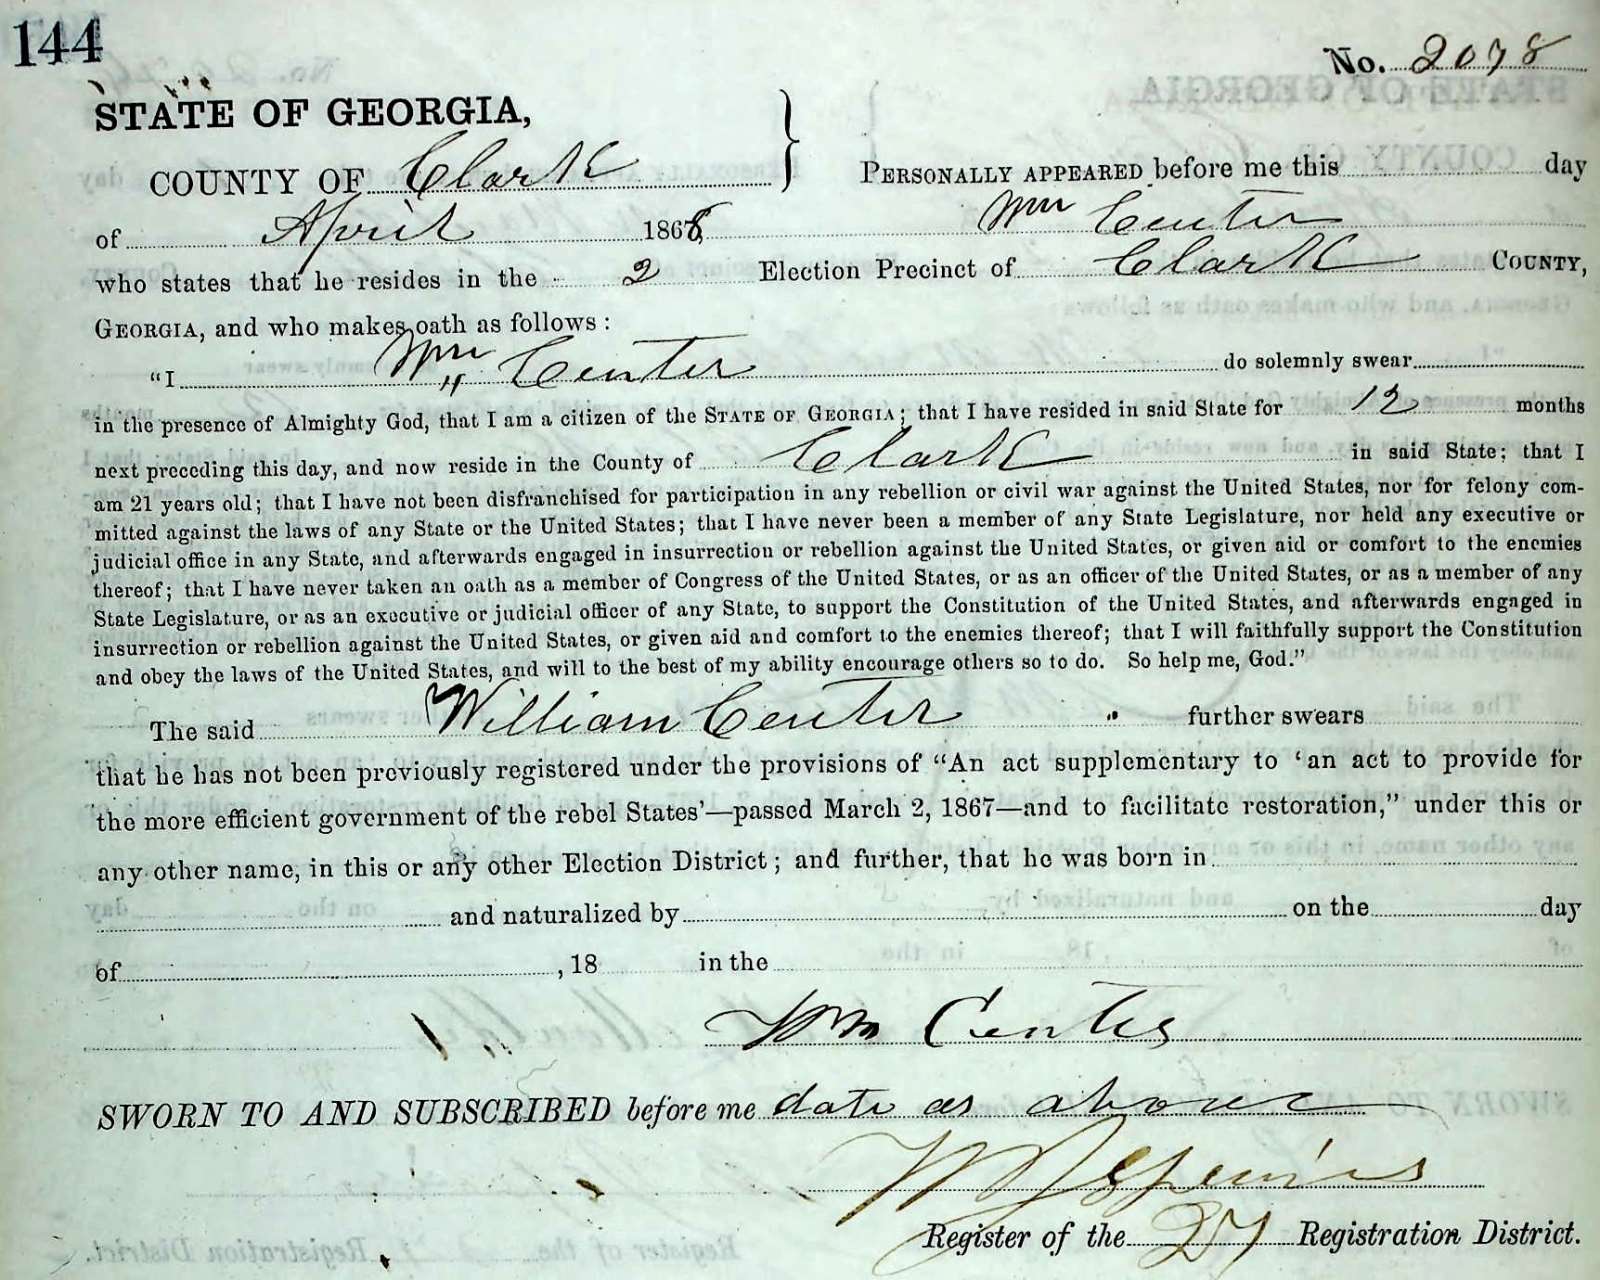 144
No. 2078
STATE OF GEORGIA,
COUNTY OF Clark } PERSONALLY APPEARED before me this day
of April 1868 Wm Center
who states that he resides in the 2 Election Precinct of Clark COUNTY,
GEORGIA, and who makes oath as follows :
"I Wm Center do solemnly swear
in the presence of Almighty God, that I am a citizen of the STATE OF GEORGIA; that I have resided in said State for 12 months
next preceding this day, and now reside in the County of Clark in said State; that I
am 21 years old; that I have not been disfranchised for participation in any rebellion or civil war against the United States, nor for felony com-
mitted against the laws of any State or the United States; that I have never been a member of any State Legislature, nor held any executive or
judicial office in any State, and afterwards engaged in insurrection or rebellion against the United States, or given aid or comfort to the enemies
thereof; that I have never taken an oath as a member of Congress of the United States, or as an officer of the United States, or as a member of any
State Legislature, or as an executive or judicial officer of any State, to support the Constitution of the United States, and afterwards engaged in
insurrection or rebellion against the United States, or given aid and comfort to the enemies thereof; that I will faithfully support the Constitution
and obey the laws of the United States, and will to the best of my ability encourage others so to do. So help me, God."
The said William Center further swears
that he has not been previously registered under the provisions of "An act supplementary to 'an act to provide for
the more efficient government of the rebel States'—passed March 2, 1867—and to facilitate restoration," under this or
any other name, in this or any other Election District; and further, that he was born in
and naturalized by on the day
of , 18 in the
Wm Center
SWORN TO AND SUBSCRIBED before me date as above
Register of the 27 Registration District.